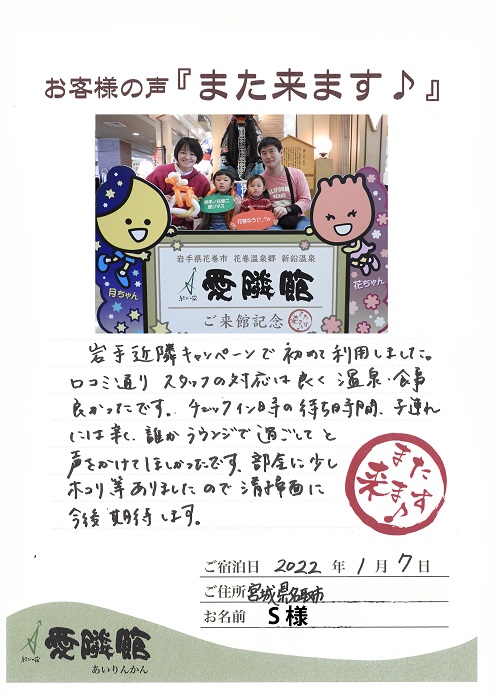 お客様の声『また来ます♪』
CALIFORNIA
月ちゃん
花ちゃん
岩手県花巻市 花巻温泉郷 新鉛温泉
愛隣館
ご来館記念
岩手近隣キャンペーンで初めて利用しました。
口コミ通り スタッフの対応は良く 温泉・食事
良かったです。チェックイン時の待ち時間、子連れ
には辛く、誰かラウンジで過ごしてと
声をかけてほしかったです。部屋に少し
ホコリ等ありましたので清掃面に
今後期待します。
また来ます♪
ご宿泊日 2022 年 1 月 7 日
ご住所 宮城県名取市
お名前 S 様
愛隣館
あいりんかん